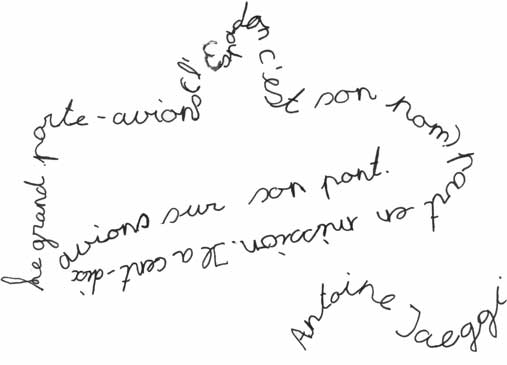 Le grand porte-avions (l'Espadon c'est son nom) part en mission. Il a cent-dix
avions sur son pont.
Antoine Jaeggi